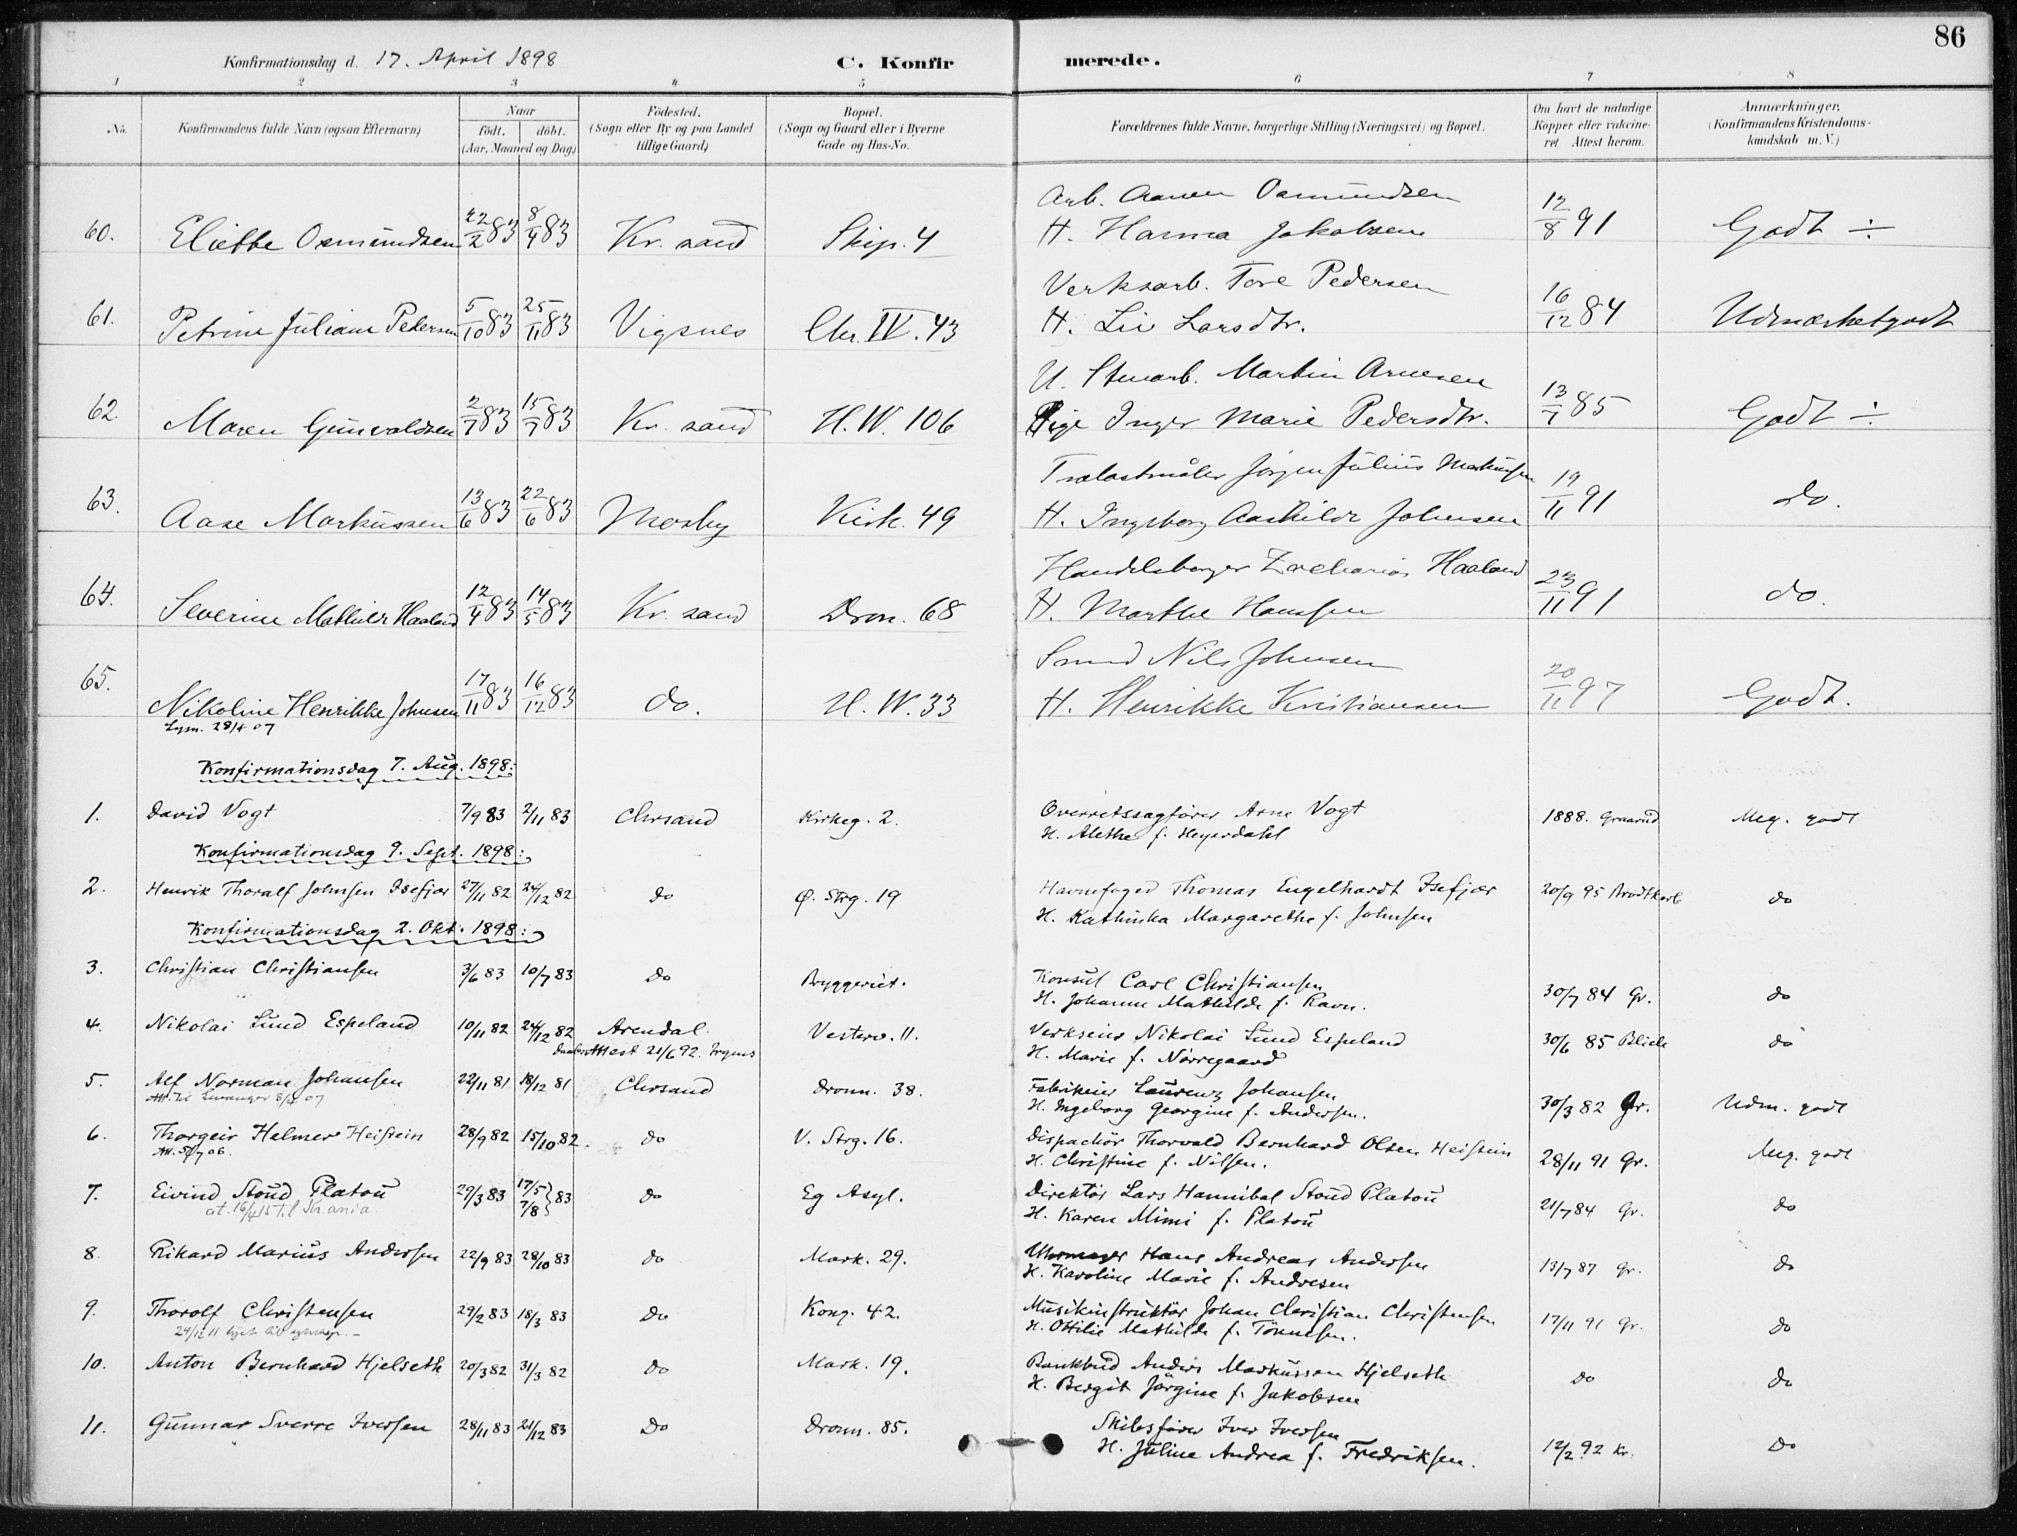 86
Konfirmationsdag d. 17. April 1898
C. Konfirmerede.
1 2 3 4 5 6 7 8
No.
Konfirmandens fulde Navn (ogsaa Efternavn)
Naar
födt. döbt.
(Aar, Maaned og Dag)
Födested.
(Sogn eller By og paa Landet
tillige Gaard)
Bopæl.
(Sogn og Gaard eller i Byerne
Gade og Hus-No.
Forældrenes fulde Navne, borgerlige Stilling (Næringsvei) og Bopæl.
Om havt de naturlige
Kopper eller vakcine-
ret Attest herom.
Anmærkninger,
(Konfirmandens Kristendoms-
kundskab m. V.)
60. Osmundsen 22/2 83 8/4 83 Kr. sand Skip. 4
Arb. Osmundsen
H. Hanna Jakobsen
12/8 91 Godt ÷
61. Petrine Juliane Pedersen 5/10 83 25/11 83 Vigsnes Chr. IV. 43
Verksarb. Tore Pedersen
H. Liv Larsdtr.
16/12 84 Udmærket godt
62. Maren Gunvaldsen 2/7 83 15/7 83 Kr. sand H. W. 106
U. Stenarb. Martin Arnesen
Pige Inger Marie Pedersdtr.
13/7 85 Godt ÷
63. Aase Markussen 13/6 83 22/6 83 Mosby Kirk. 49
Trælastmåler Jörgen Julius Markussen
H. Ingeborg Aashilde Johnsen
19/11 91 do.
64. Severine Mathilde Haaland 12/4 83 14/5 83 Kr. sand Dron. 68
Handelsborger Zacharias Haaland
H. Marthe Hanssen
23/11 91 do.
65. Nikoline Henrikke Johnsen 17/11 83 16/12 83 do. H. W. 33
28/4 07
Smed Nils Johnsen
H. Henrikke Kristiansen
20/11 97 Godt.
Konfirmationsdag 7. Aug. 1898:
1. David Vogt 7/9 83 2/11 83 Chrsand Kirkeg. 2.
Overretssagförer Arne Vogt
H. Alethe f. Heyerdahl
1888. Graarud Meg. godt
Konfirmationsdag 9. Sept. 1898:
2. Henrik Thoralf Johnsen Isefjær 27/11 82 24/12 82 do Ø. Strg. 19
Havnefoged Thomas Engelhardt Isefjær
H. Kathinka Margarethe f. Johnsen
20/9 95 Brodtkorb do
Konfirmationsdag 2. Okt. 1898:
3. Christian Christiansen 3/6 83 10/7 83 do Bryggeriet.
Konsul Carl Christiansen
H. Johanne Mathilde f. Ravn.
30/7 84 Gr. do
4. Nikolai Lund Espeland 10/11 82 24/12 82 Arendal. Vesterv. 11.
Daabsattest 21/6 92. Irgens
Verkseier Nikolai Lund Espeland
H. Marie f. Nörregaard
30/6 85 Blich do
5. Alf Norman Johansen 22/11 81 18/12 81 Chrsand Dronn. 38.
Att. til Levanger 8/4 07
Fabrikeier Laurenz Johansen
H. Ingeborg Georgine f. Andersen.
30/3 82 Gr. Udm. godt
6. Thorgeir Helmer Heistein 28/9 82 15/10 82. do V. Strg. 16.
Dispachör Thorvald Bernhard Olsen Heistein
H. Christine f. Nilsen.
28/11 91 Gr. Meg. godt
7. Eivind Stoud Platou 29/3 83 17/5 7/8 } 83 do Eg Asyl.
at. 16/4 15 til Kr.ania
Direktör Lars Hannibal Stoud Platou
H. Karen Mimi f. Platou
21/7 84 Gr. do
8. Rikard Marius Andersen 22/9 83 28/10 83 do Mark. 29.
Uhrmager Hans Andreas Andersen
H. Karoline Marie f. Andresen
13/7 87 Gr. do
9. Thorolf Christensen 29/2 83 18/3 83 do Kong. 42.
Musikinstruktör Johan Christian Christensen
H. Ottilie Mathilde f. Tönnesen.
17/11 91 Gr. do
10. Anton Bernhard Hjelseth 20/3 82 31/3 82 do Mark. 19.
Bankbud Anders Markussen Hjelseth
H. Bergit Jörgine f. Jakobsen
do do
11. Gunnar Sverre Iversen 28/11 83 21/12 83 Do Dronn. 85.
Skibsförer Iver Iversen
H. Juline Andrea f. Fredriksen.
12/2 92 Kr. do